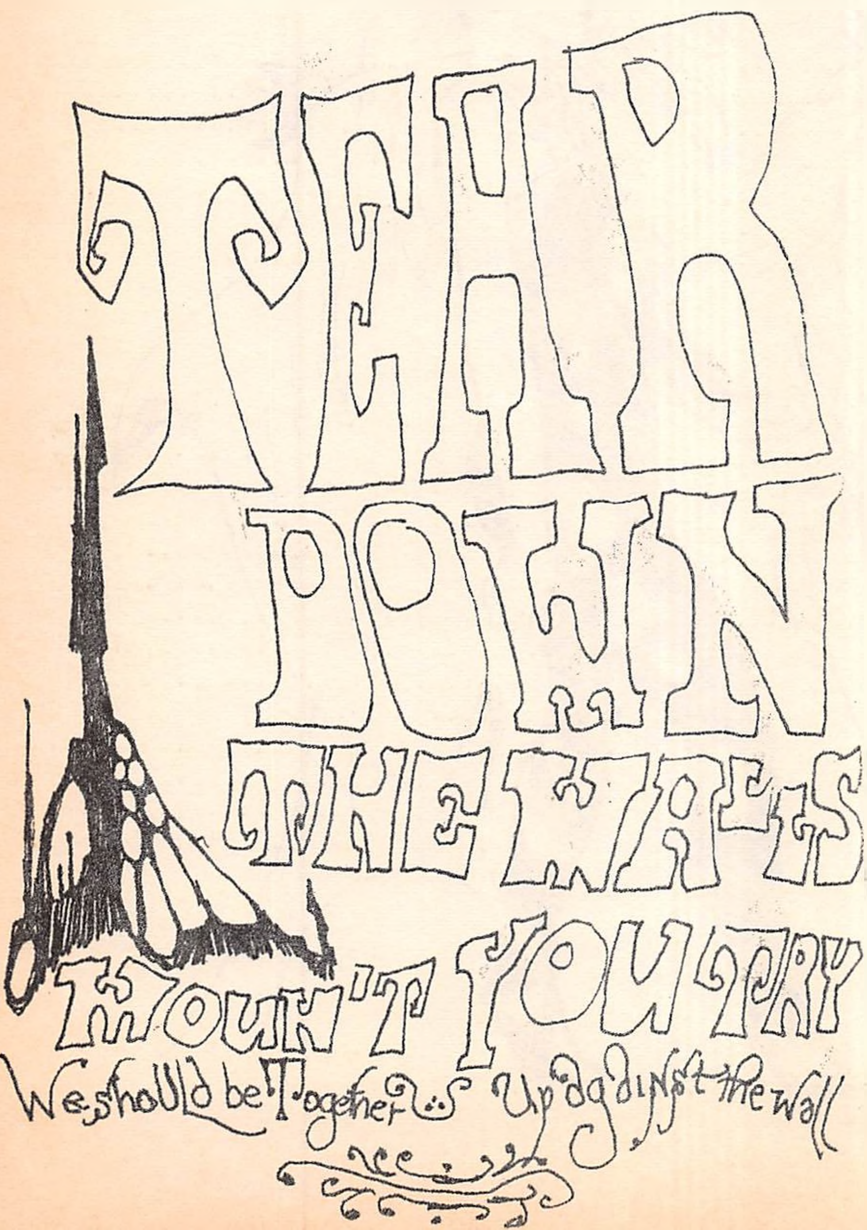 TEAR
DOWN
THE WALLS
WOUN'T YOU TRY
We should be Together Up against the wall